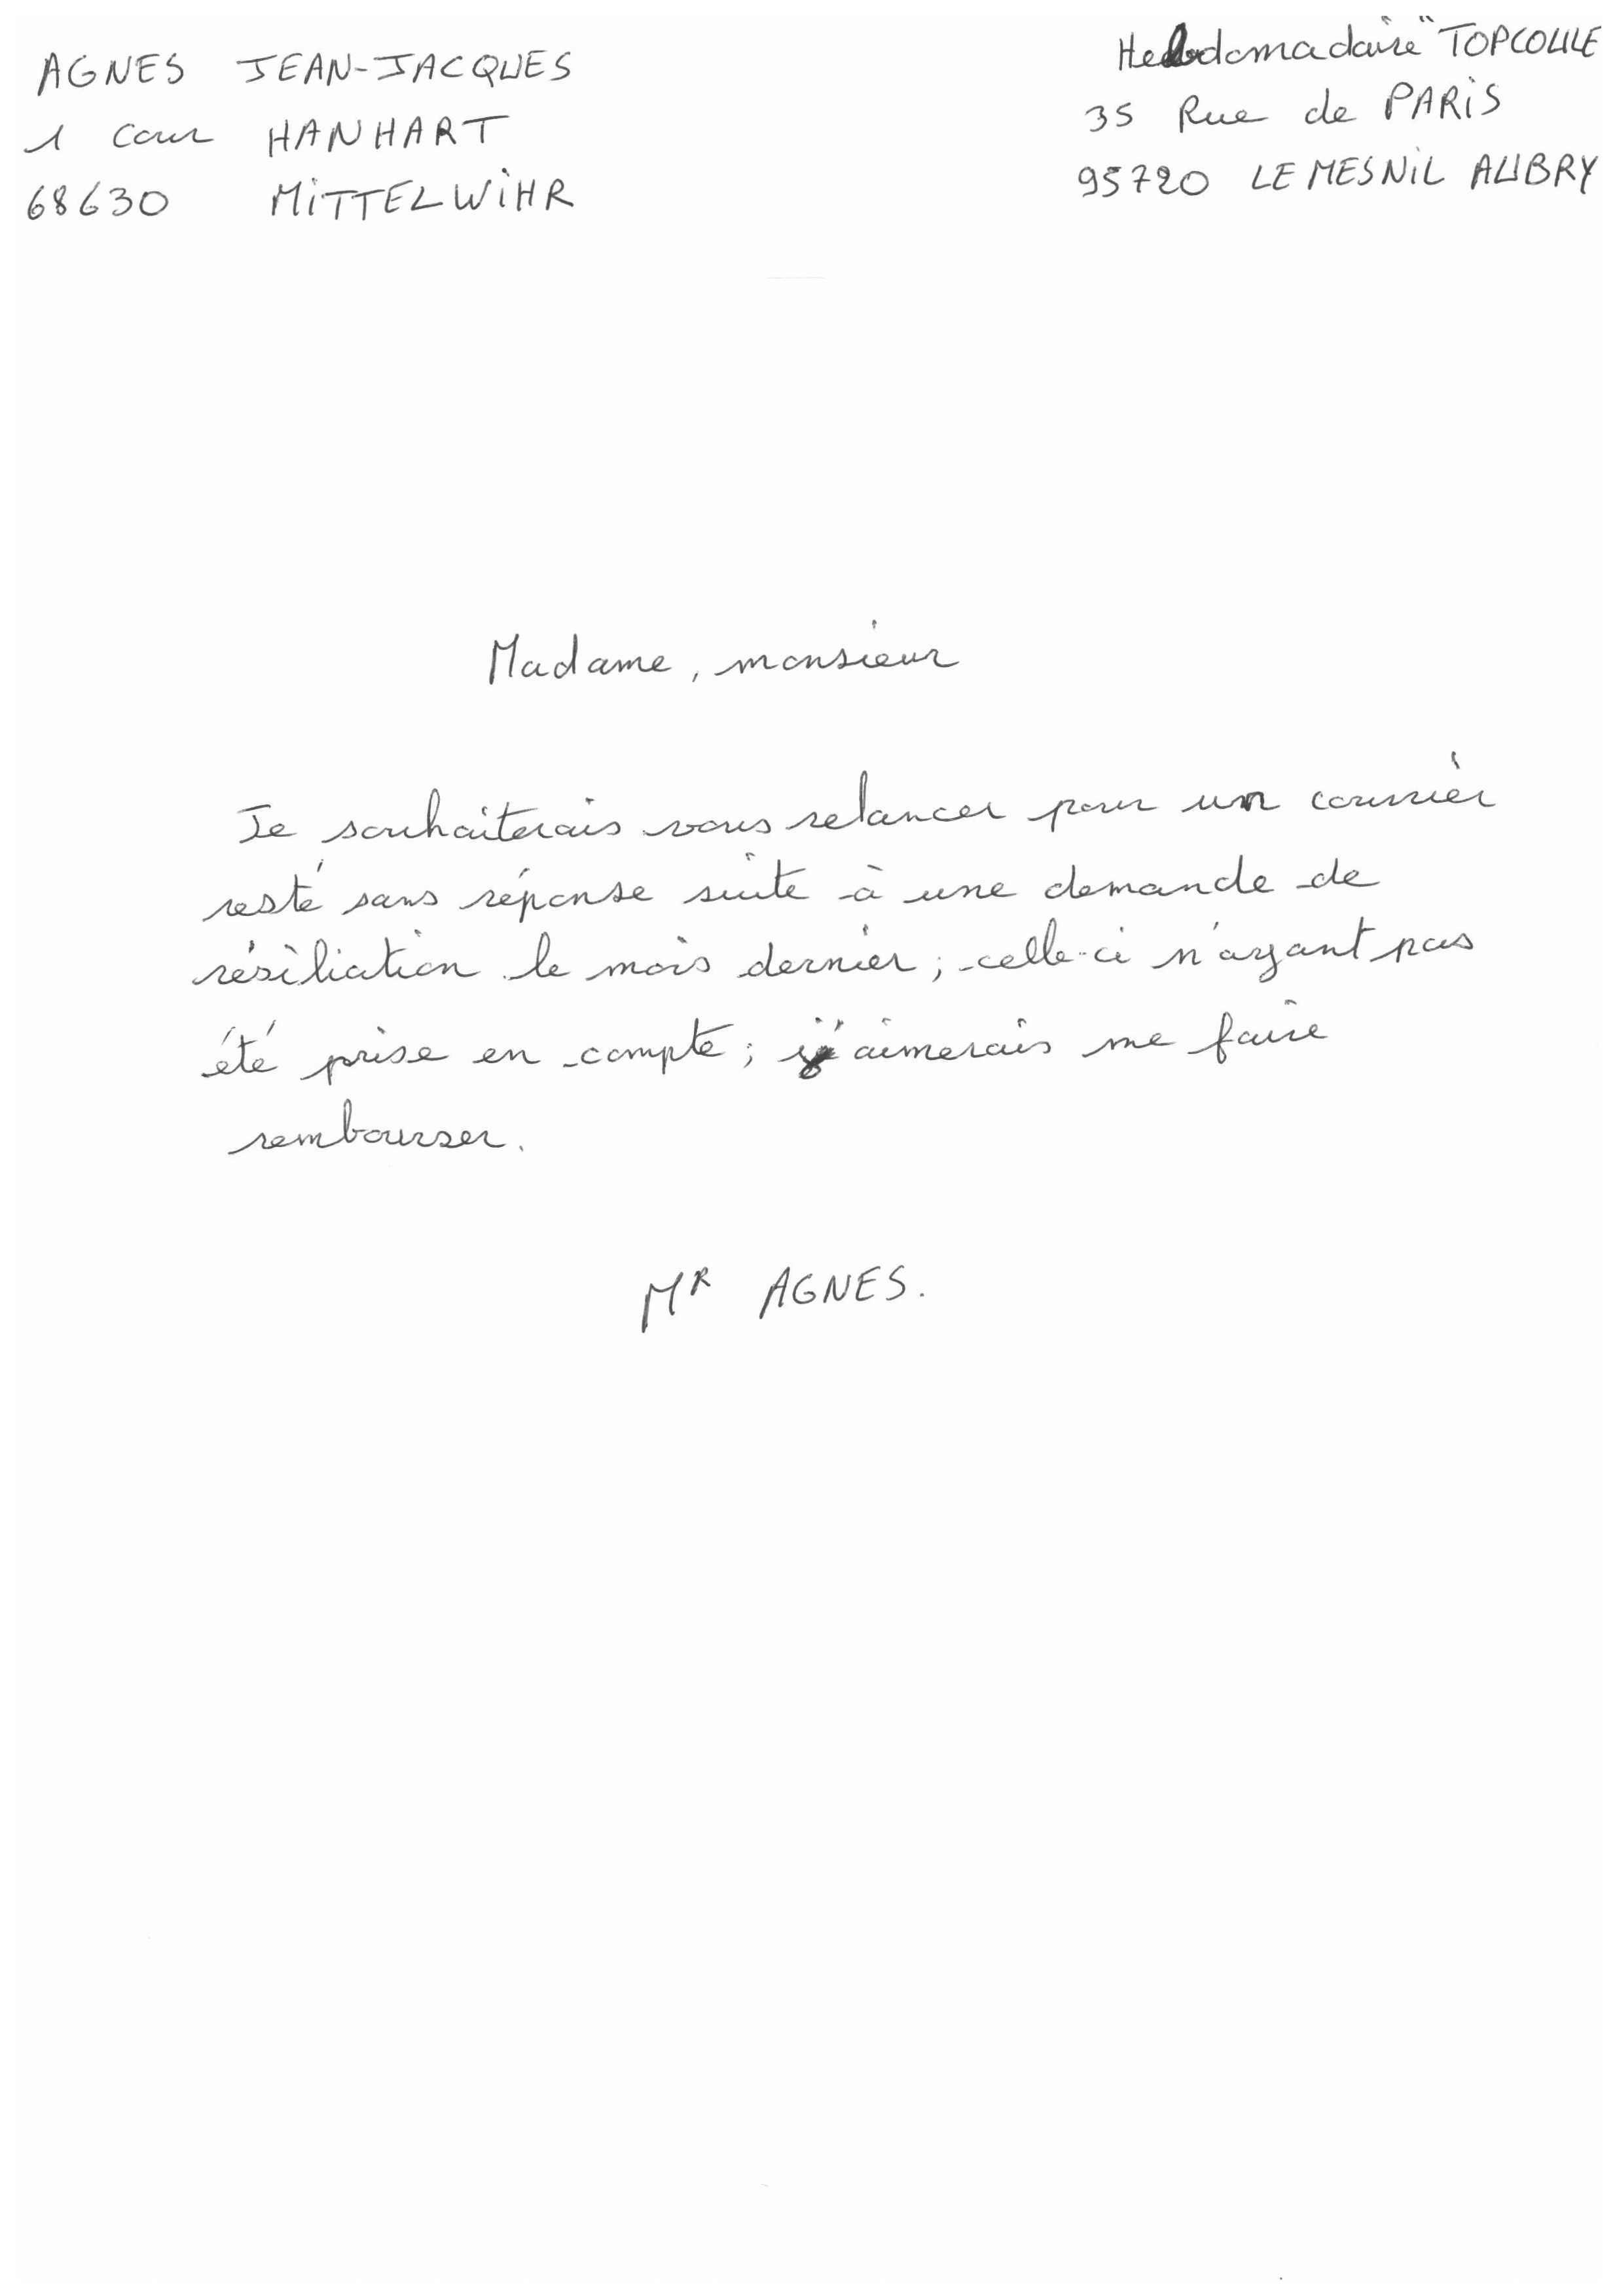 AGNES JEAN-JACQUES
1 cour HANHART
68630 MiTTELWiHR
Hebdomadaire "TOPCOLLE
35 Rue de PARiS
95720 LE MESNiL AUBRY
Madame, monsieur
Je souhaiterais vous relancer pour un courrier
resté sans réponse suite à une demande de
résiliation le mois dernier ; celle-ci n'ayant pas
été prise en compte ; j'aimerais me faire
rembourser.
MR AGNES.